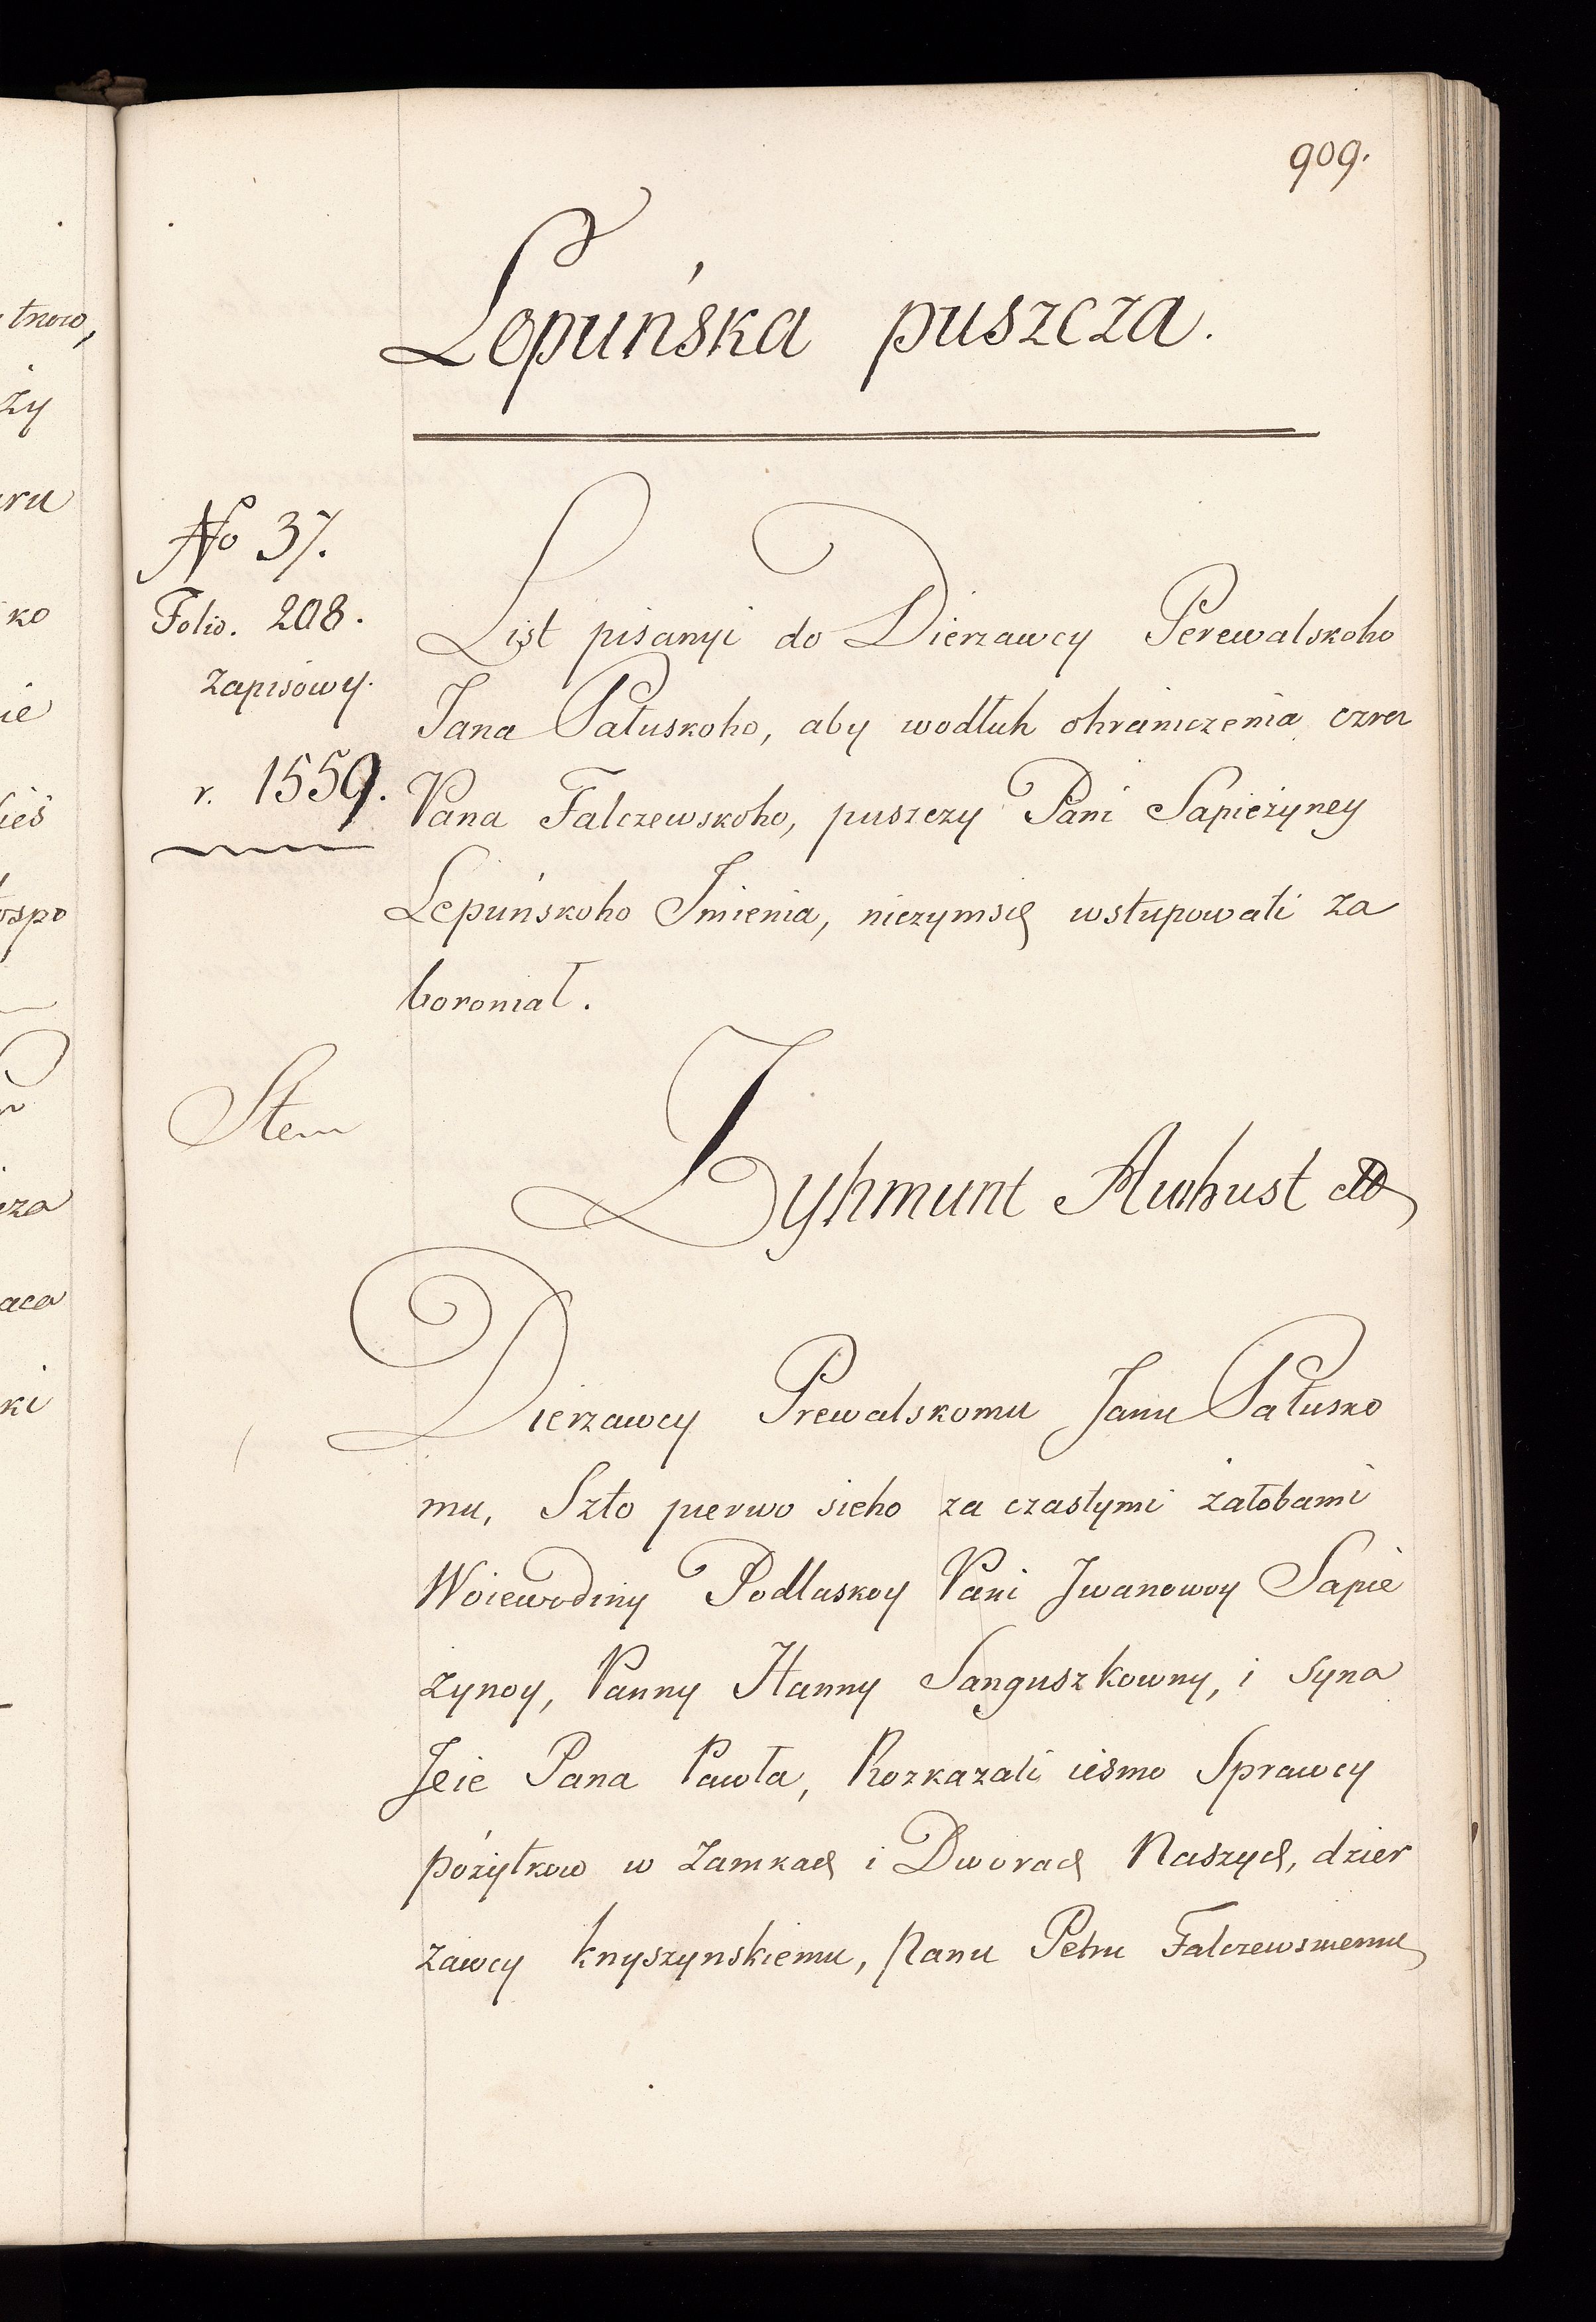 909.
Łopuńska puszcza.
No 37.
Folio. 208.
zapisowy.
r. 1559.
List pisanyi do Dierzawcy Perewalskoho
Jana Pałuskoho, aby wodłuh ohraniczenia czrez
Pana Falczewskoho, puszczy Pani Sapieżyney
Lepuńskoho Imienia, niczymsię wstupowati za
boroniał.
Stem
Zyhmunt Auhust
Dierzawcy Prewalskomu Janu Pałusko
mu, Szto pierwo sieho za czastymi żałobami
Woiewodiny Podlaskoy Pani Iwanowoy Sapie
zynoy, Panny Hanny Sanguszkowny, i syna
Jeie Pana Pawła, Rozkazali iesmo Sprawcy
pożytkow w Zamkach i Dworach Naszych, dzier
zawcy knyszynskiemu, Panu Petru Falczewskiemu
tnow,
ży
ru
ko
ie
ieś
ospo
za
aca
ki